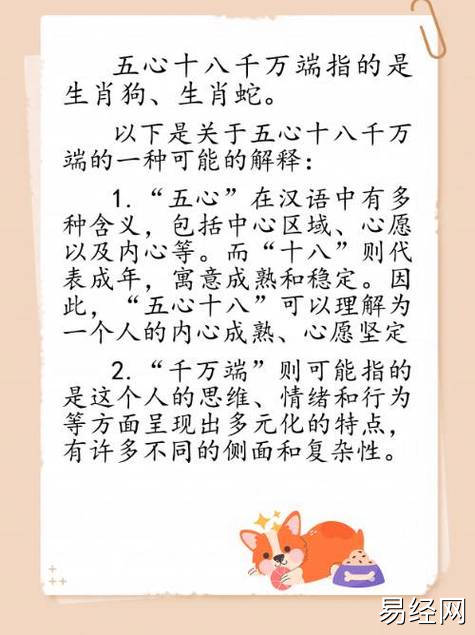 五心十八千万端指的是
生肖狗、生肖蛇。
以下是关于五心十八千万
端的一种可能的解释：
1.“五心”在汉语中有多
种含义，包括中心区域、心愿
以及内心等。而“十八”则代
表成年，寓意成熟和稳定。因
此，“五心十八”可以理解为
一个人的内心成熟、心愿坚定
2.“千万端”则可能指的
是这个人的思维、情绪和行为
等方面呈现出多元化的特点，
有许多不同的侧面和复杂性。
易经网